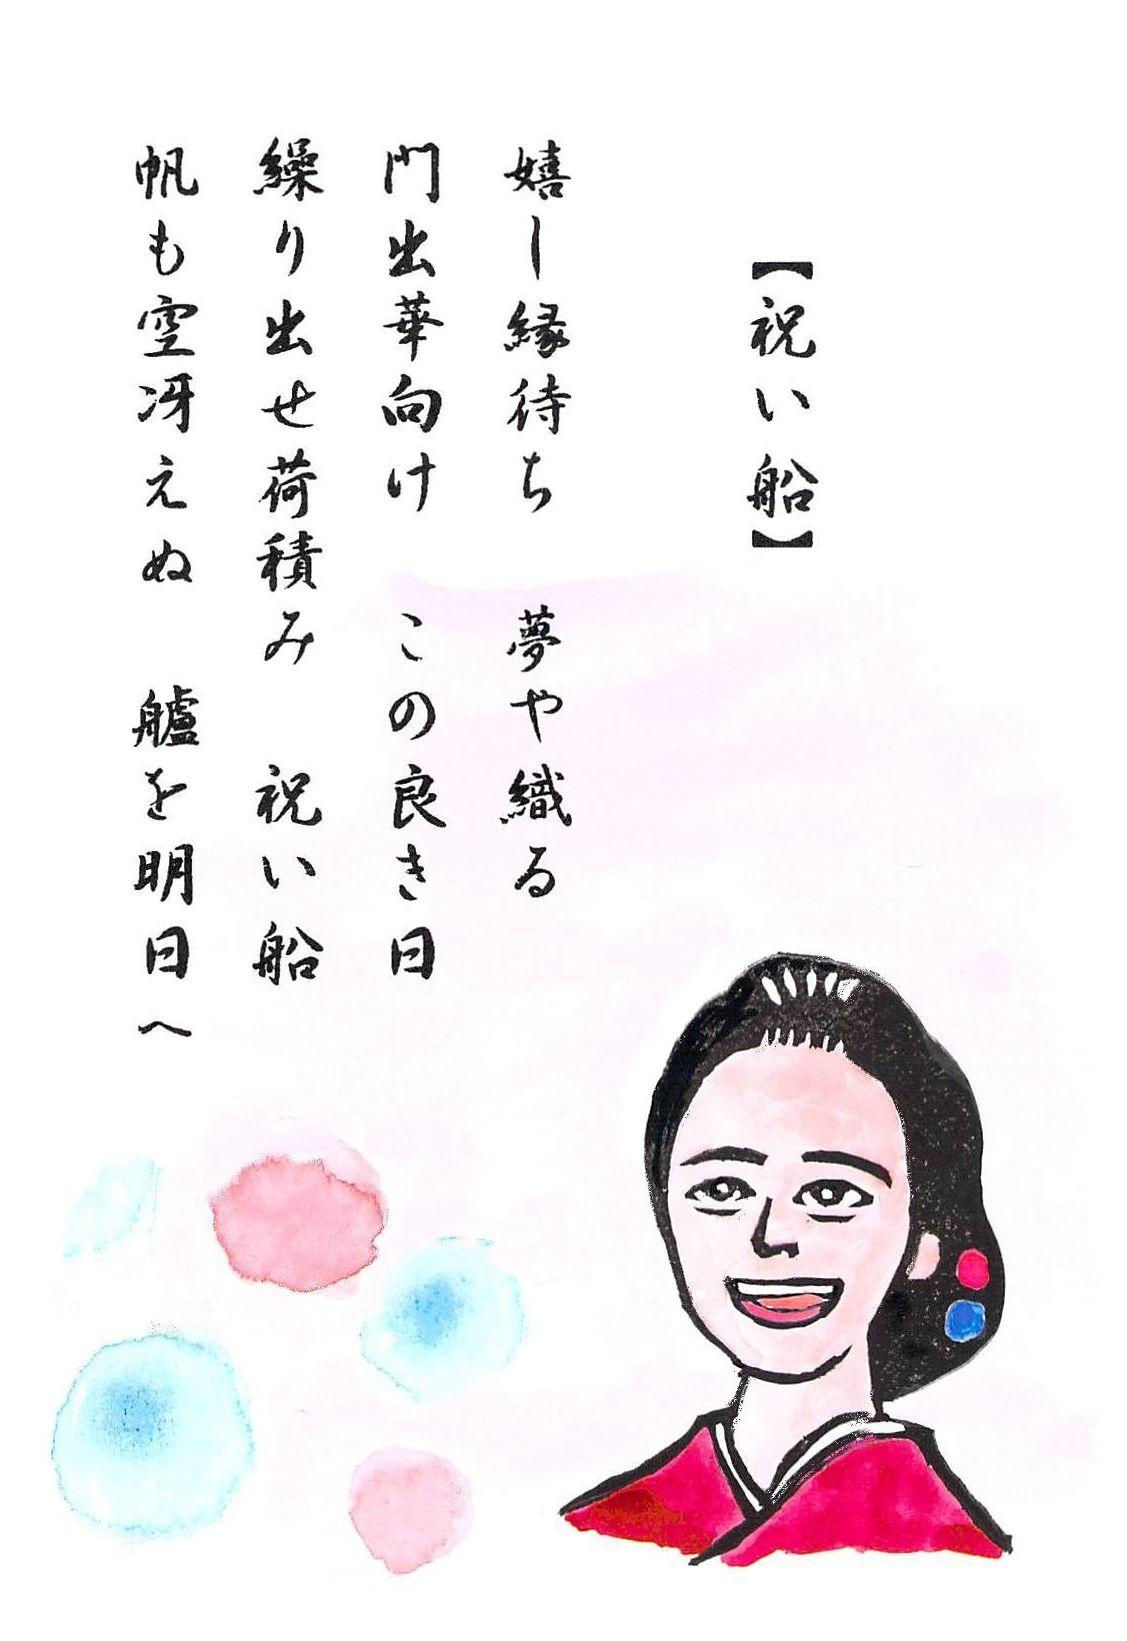 【祝い船】
嬉し縁待ち　夢や織る
門出華向け　この良き日
繰り出せ荷積み　祝い船
帆も空冴えぬ　艫を明日へ